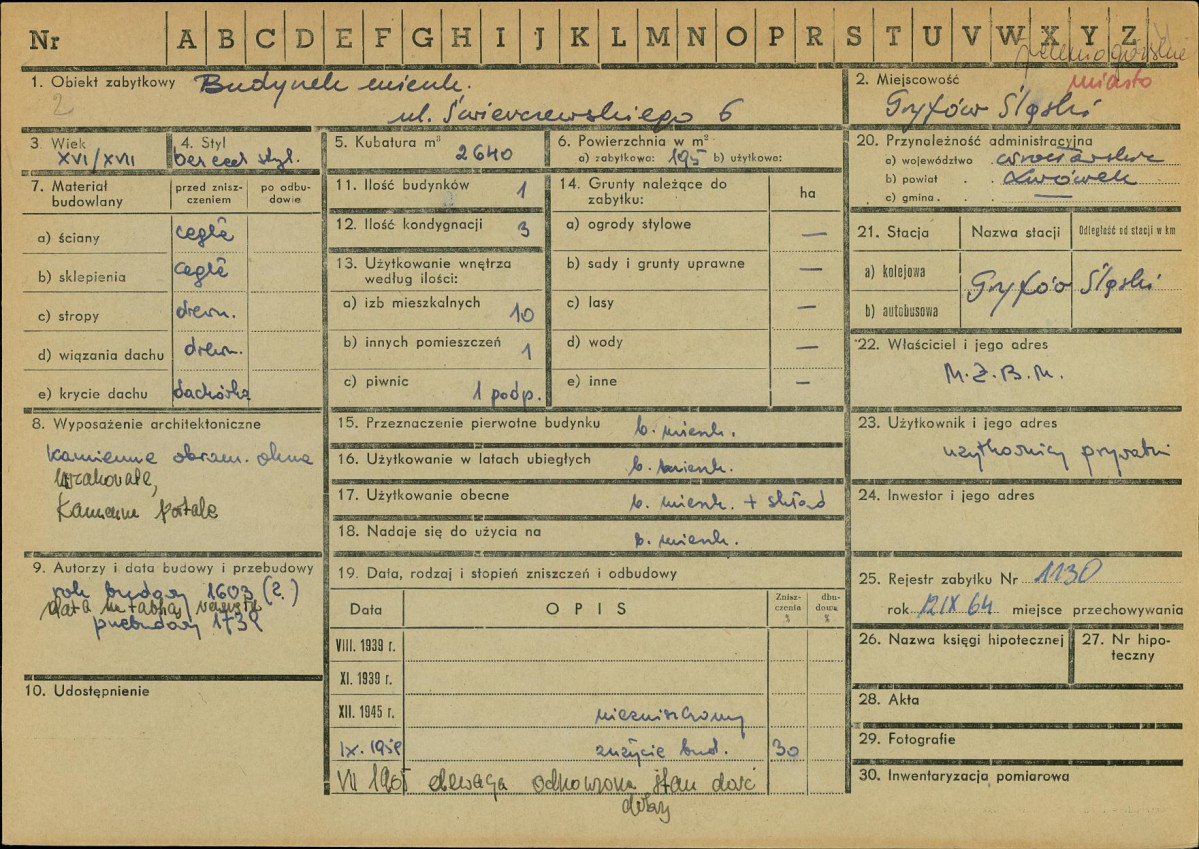 Nr A B C D E F G H I J K L M N O P R S T U V W X Y Z
miasto
1. Obiekt zabytkowy Budynek mieszk.
2
ul. Świerczewskiego 6
2. Miejscowość
Gryfów Śląski
3. Wiek
XVI/XVII
4. Styl
bez cech styl.
5. Kubatura m³ 2640
6. Powierzchnia w m²
a) zabytkowa: 195 b) użytkowa:
20. Przynależność administracyjna
a) województwo wrocławskie
b) powiat Lwówek
c) gmina
7. Materiał budowlany
przed zniszczeniem
po odbudowie
a) ściany cegła
b) sklepienia cegła
c) stropy drewn.
d) wiązania dachu drewn.
e) krycie dachu dachówka
11. Ilość budynków 1
12. Ilość kondygnacji 3
13. Użytkowanie wnętrza
według ilości:
a) izb mieszkalnych 10
b) innych pomieszczeń 1
c) piwnic 1 podp.
14. Grunty należące do
zabytku:
ha
a) ogrody stylowe —
b) sady i grunty uprawne —
c) lasy —
d) wody —
e) inne —
21. Stacja Nazwa stacji Odległość od stacji w km
a) kolejowa
Gryfów Śląski
b) autobusowa
22. Właściciel i jego adres
M.Z.B.M.
8. Wyposażenie architektoniczne
kamienne obram. okna
Kamienne portale
15. Przeznaczenie pierwotne budynku b. mieszk.
16. Użytkowanie w latach ubiegłych b. mieszk.
17. Użytkowanie obecne b. mieszk. + skład
18. Nadaje się do użycia na b. mieszk.
23. Użytkownik i jego adres
użytkownicy prywatni
24. Inwestor i jego adres
9. Autorzy i data budowy i przebudowy
rok budowy 1603 (?)
data na tablicy
przebudowy 1739
10. Udostępnienie
19. Data, rodzaj i stopień zniszczeń i odbudowy
Data OPIS Zniszczenia % dbudowa %
VIII. 1939 r.
XI. 1939 r.
XII. 1945 r. niezniszczony
IX. 1959 zużycie bud. 30
VII 1965 elewacja odnowiona stan dość
dobry
25. Rejestr zabytku Nr 1130
rok 12 IX 64 miejsce przechowywania
26. Nazwa księgi hipotecznej
27. Nr hipoteczny
28. Akta
29. Fotografie
30. Inwentaryzacja pomiarowa